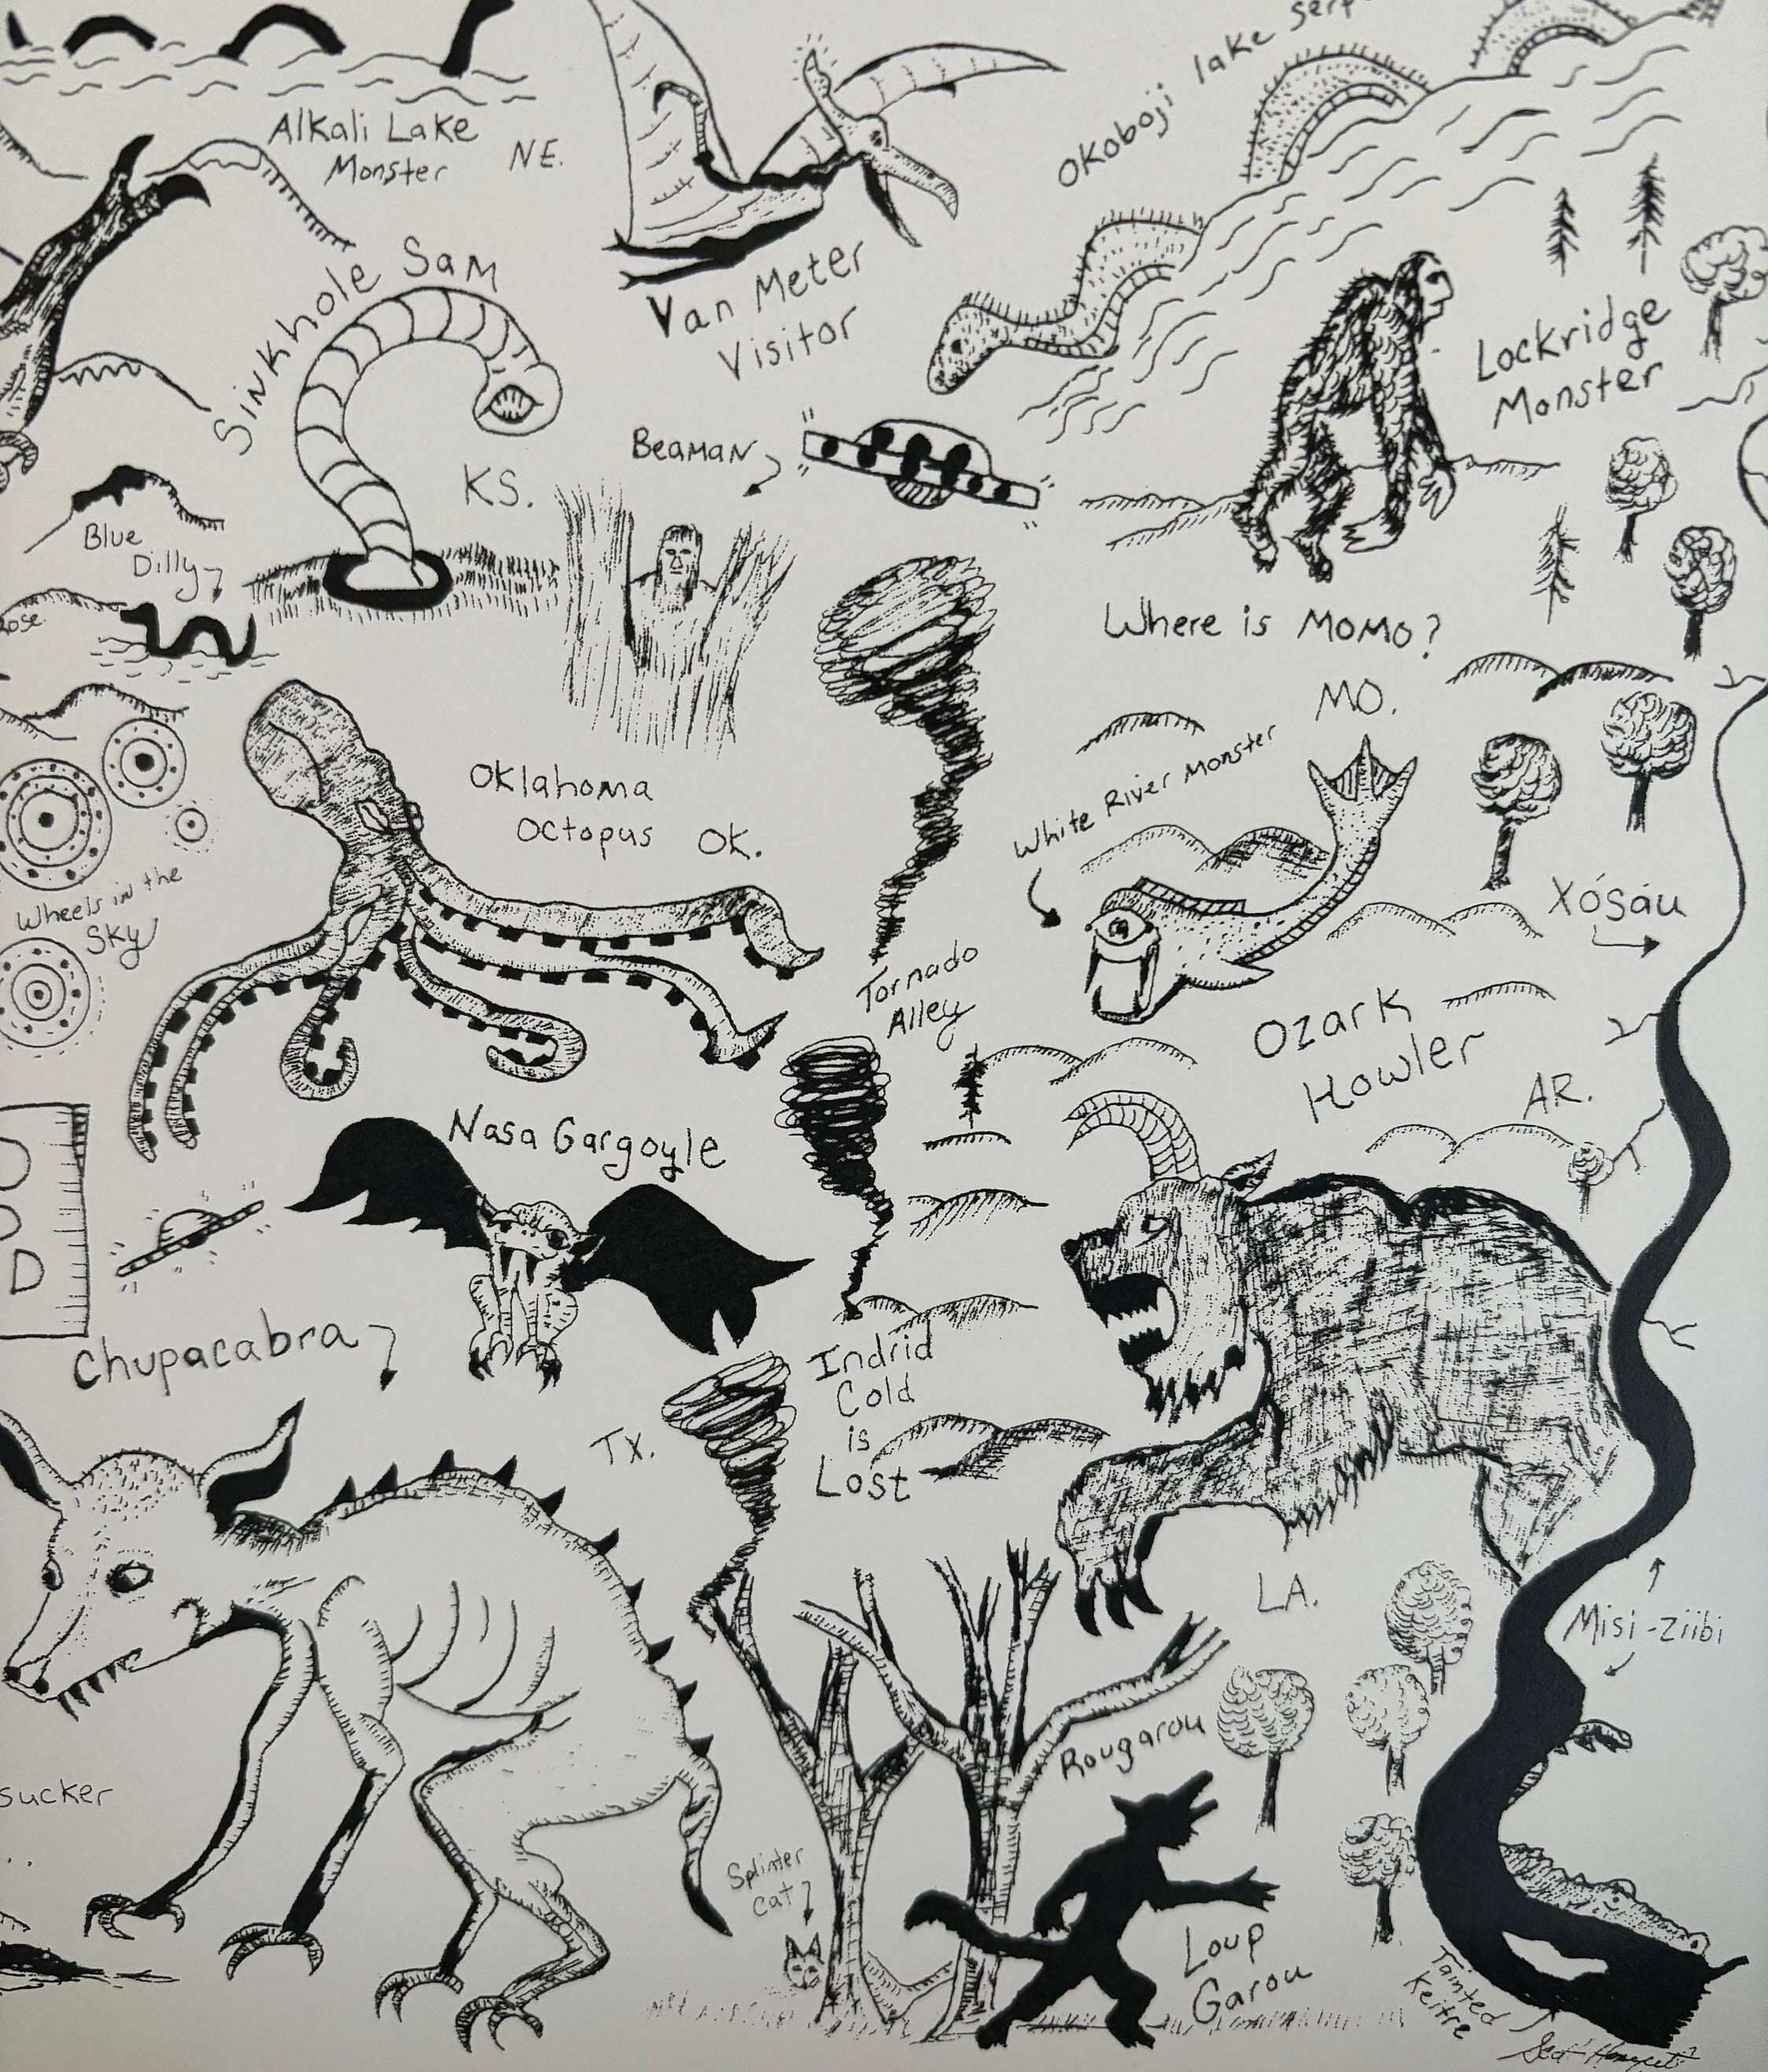 Okoboji lake serp
Alkali Lake
Monster
NE.
Sinkhole Sam
Van Meter
Visitor
Lockridge
Monster
Beaman
KS.
Blue
Dilly
Where is MOMO?
MO.
White River Monster
Oklahoma
Octopus OK.
Wheels in the
Sky
Xósáu
Tornado
Alley
Ozark
Howler
AR.
Nasa Gargoyle
D
Chupacabra
Indrid
Cold
is
Lost
TX.
LA.
Misi-ziibi
Rougarou
sucker
Splinter
Cat
Loup
Garou
Tainted
Keitre